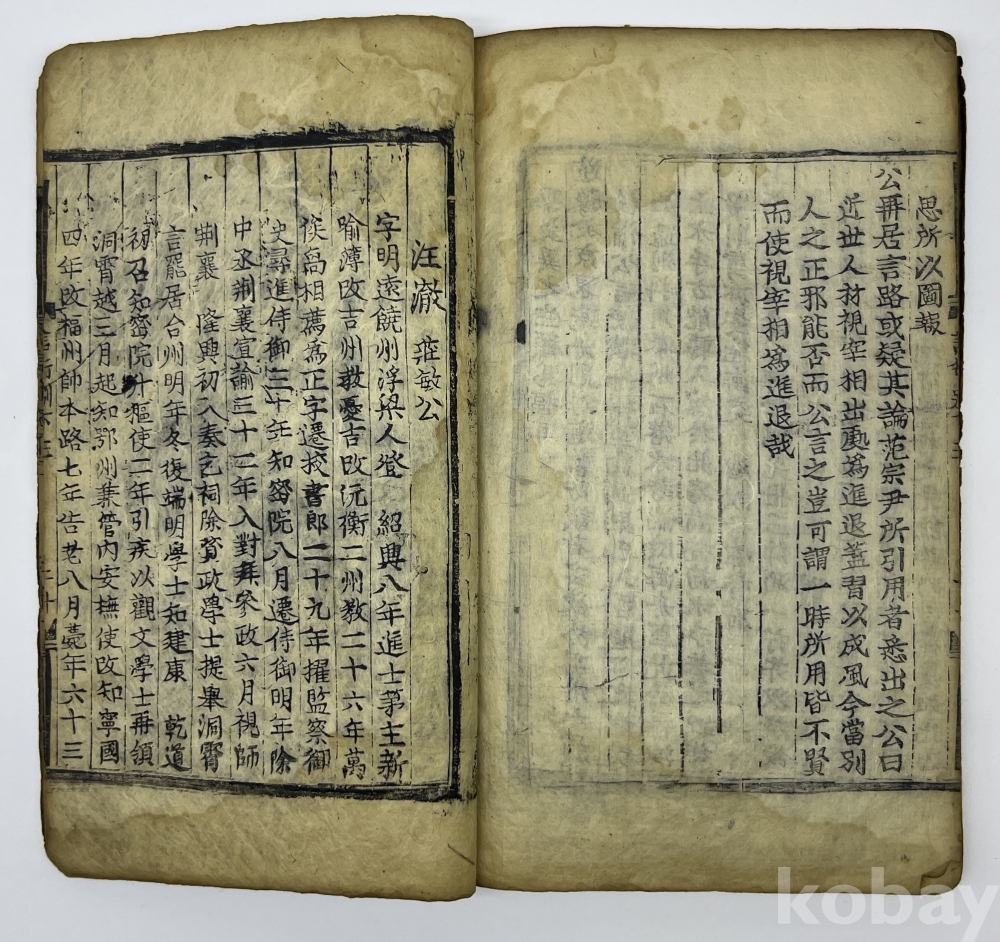 思所以圖報
公再居言路或疑其論范宗尹所引用者悉出之公曰
近世人材視宰相出處為進退盖習以成風今當別
人之正邪能否而公言之豈可謂一時所用皆不賢
而使視宰相為進退哉
汪澈 莊敏公
字明遠饒州浮梁人登 紹興八年進士第主新
喻薄改吉州教憂吉改沅衡二州教二十六年萬
俟卨相薦為正字遷挍書郎二十九年擢監察御
史尋進侍御三十年知密院八月遷侍御明年除
中丞荆襄宣諭三十二年入對拜參政六月視師
荆襄 隆興初入奏乞祠除資政學士提舉洞霄
言罷居台州明年冬復端明學士知建康 乾道
初召知密院升樞使二年引疾以觀文學士再領
洞霄越二月起知鄂州兼管內安撫使改知寧國
四年改福州帥本路七年告老八月薨年六十三
kobay